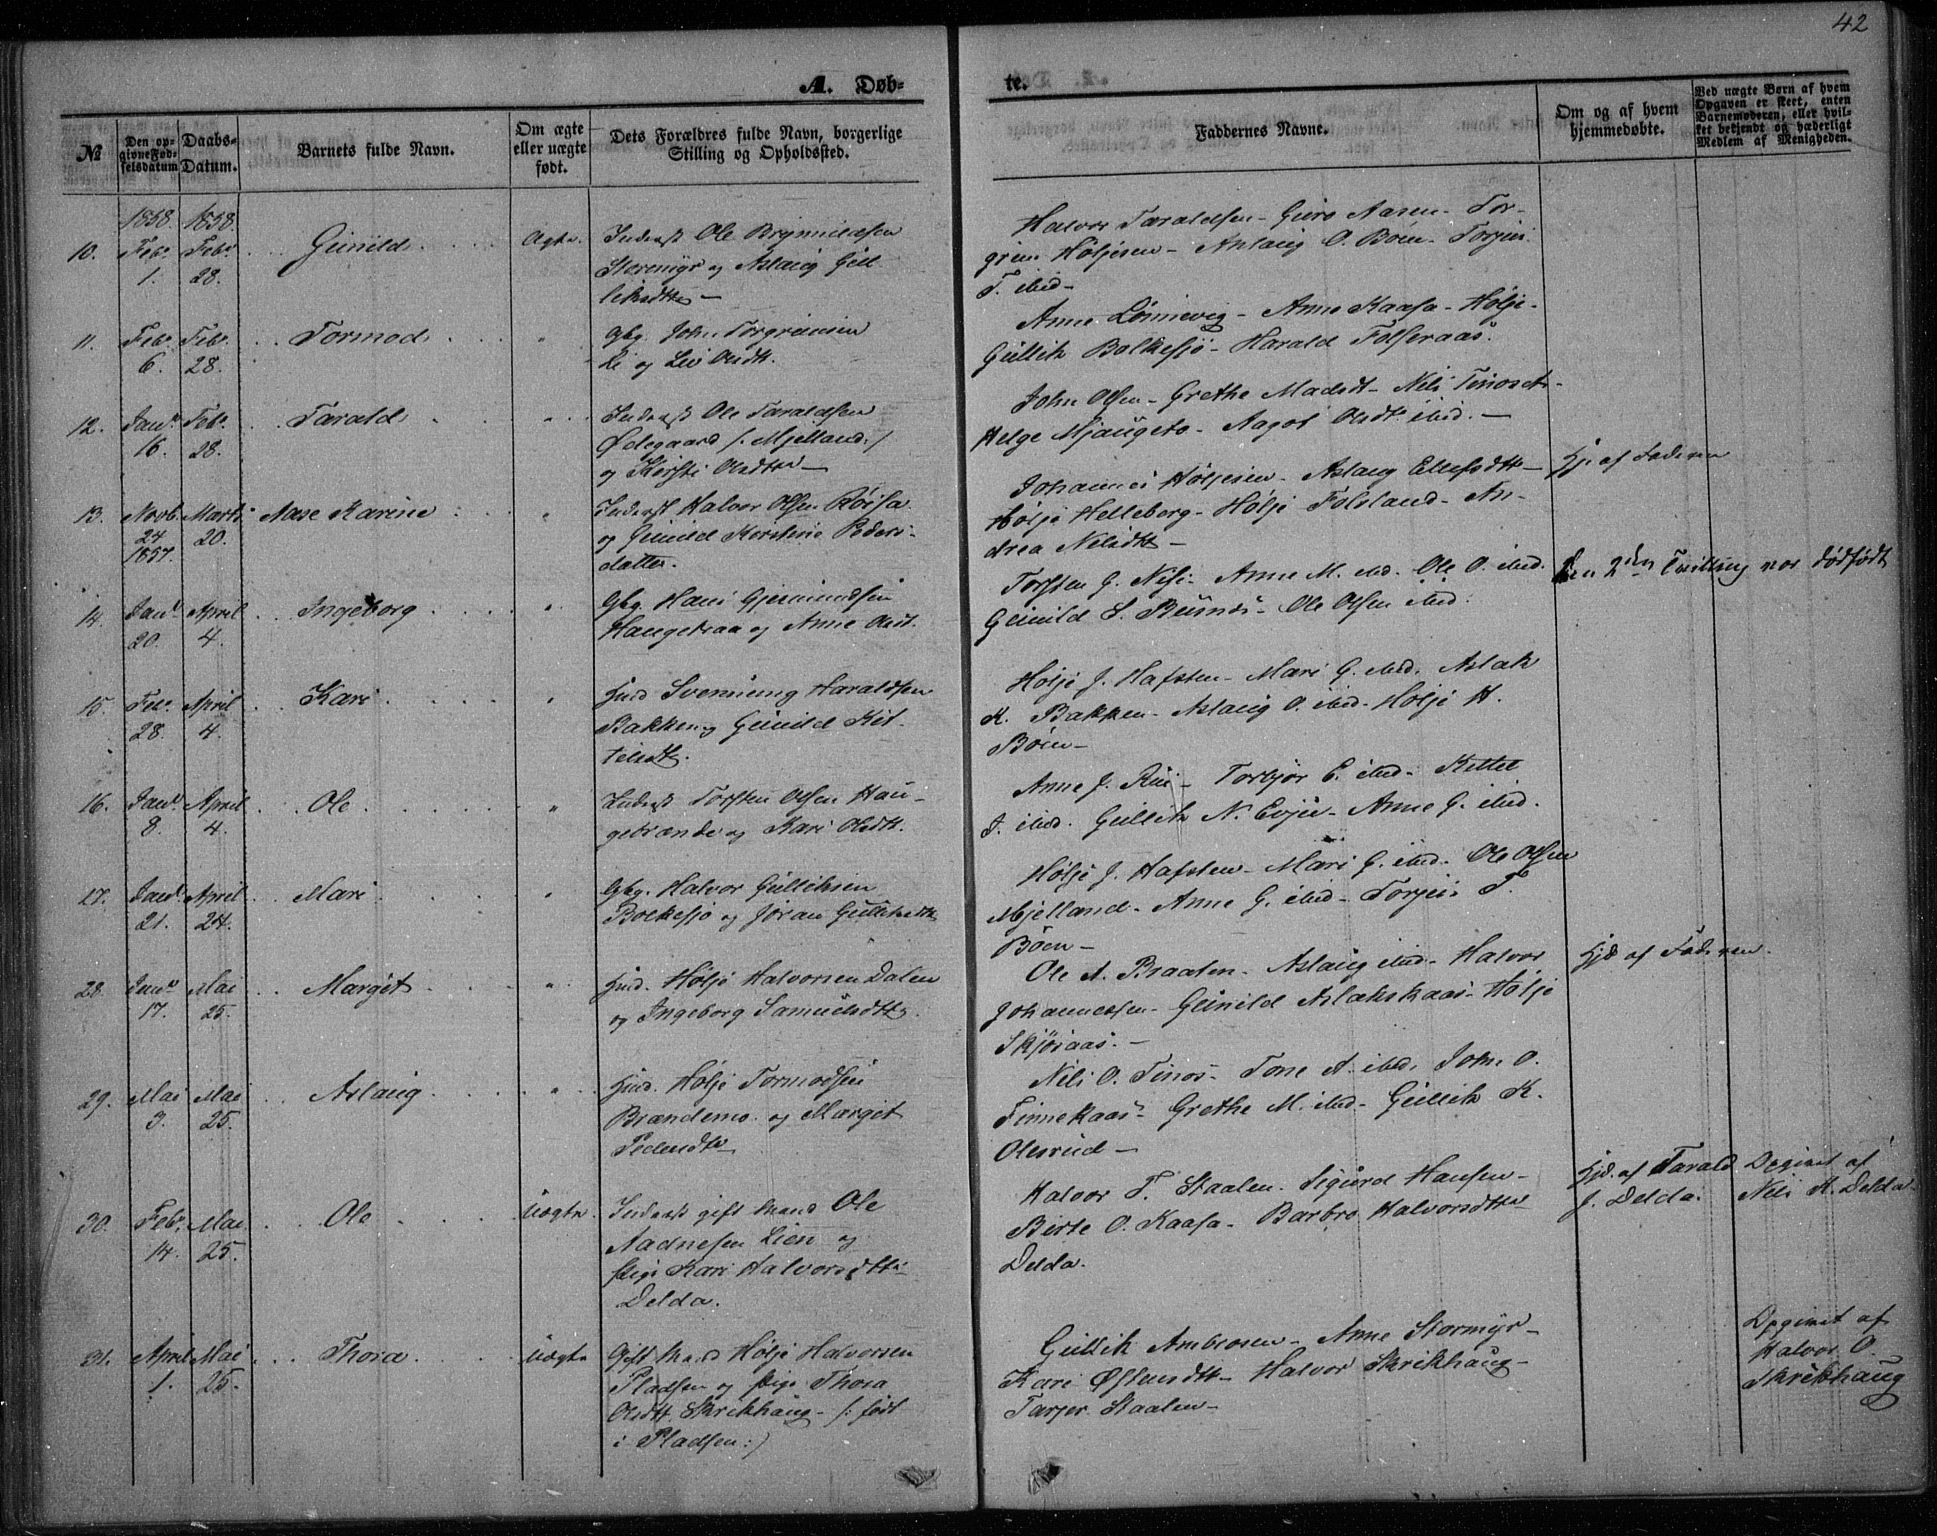 42
A. Døb-
te.
№
Den op-
givne Fød-
selsdatum
Daabs-
Datum.
Barnets fulde Navn.
Om ægte
eller uægte
født.
Dets Forældres fulde Navn, borgerlige
Stilling og Opholdssted.
Faddernes Navne.
Om og af hvem
hjemmedøbte.
Ved uægte Børn af hvem
Opgaven er skeet, enten
Barnemoderen, eller hvil-
ket bekjendt og hæderligt
Medlem af Menigheden.
1858. 1858.
10. Febr. Febr. Gunild Ægte. Inderst Ole Brynnildsen
1. 28. Storemyr og Aslaug Gul
liksdtr —
Halvor Taraldsen - Guro Aasen - Tor-
grim Høljesen - Aslaug O. Bøen - Torjus
T. ibid -
11. Febr. Febr. Tormod " Gbg. John Torgrimsen
6. 28. Li og Liv Olsdt.
Anne Lønnevig - Anne Kaasa - Hølje
Gullik Bolkesjø - Harald Folseraas.
12. Janr. Febr. Tarald " Inderst Ole Taraldsen
16. 28. Ødegaard /: Mjelland :/
og Kirsti Olsdtr —
John Olsen - Grethe Madsdt - Nils Tinoset -
Helge Mjaugeto - Aagot Olsdt ibid. —
13. Novb. Marts Aase Karine " Inderst Halvor Olsen Røisa
24 20. og Gunild Kirstine Peders-
1857. datter.
Johannes Høljesen - Aslaug Ellefsdtt -
Hølje Helleberg - Hølje Folsland - An-
drea Nilsdtt —
Hj. af Faderen
14. Janr. April Ingeborg " Gbg. Hans Gjermundsen
20. 4. Haugetraa og Anne Olsdt.
Torsten G. Nisi - Anne M. ibid. Ole O. ibid.
Gunild S. Busnes - Ole Olsen ibid.
Den 2den Tvilling var dødfødt
15. Febr. April Kari " Husmd Svennung Haraldsen
28. 4. Bakken og Gunild Kit-
telsdt.
Hølje J. Hafsten - Mari G. ibid. Aslak
K. Bakken - Aslaug O. ibid - Hølje H.
Bøen -
16. Janr. April Ole " Inderst Torsten Olsen Hau-
8. 4. gebrænde og Kari Olsdtt.
Anne J. Rui - Torbjør E. ibid - Kittel
J. ibid. Gullik N. Evju - Anne G. ibid.
17. Janr. April Mari " Gbg. Halvor Gulliksen
21. 24. Bolkesjø og Jøran Gulliksdtt
Hølje J. Hafsten - Mari G. ibid - Ole Olsen
Mjelland - Anne G. ibid - Torjus T.
Bøen -
28. Janr. Mai Margit " Husmd. Hølje Halvorsen Dalen
17. 25. og Ingeborg Samuelsdtt.
Ole A. Braaten - Aslaug ibid - Halvor
Johannessen - Gunild Aslakskaas - Hølje
Skjøraas. —
Hjd af Faderen.
29. Mai Mai Aslaug " Husmd. Hølje Tormodsen
3. 25. Brandemo og Margit
Pedersdtr
Nils O. Tinos - Tone A. ibid. John O.
Finnekaas - Grethe M. ibid - Gullik K.
Olesrud —
30. Febr. Mai Ole Uægte. Inderst gift Mand Ole
14. 25. Aadnesen Lien og
Pige Kari Halvorsdtt
Delda.
Halvor T. Staalen - Sigurd Hansen -
Birte O. Kaasa - Barbro Halvorsdtter
Delda.
Hjd. af Tarald
J. Delda.
Opgivet af
Nils H. Delda
31. April Mai Thora Uægte Gift Mand Hølje Halvorsen
1. 25. Pladsen og Pige Thora
Olsdtt Skrikhaug - /: født
i Pladsen :/
Gullik Ambrosen - Anne Stormyr -
Kari Øssundtt - Halvor Skrikhaug -
Tarjer Staalen -
Opgivet af
Halvor O.
Skrikhaug